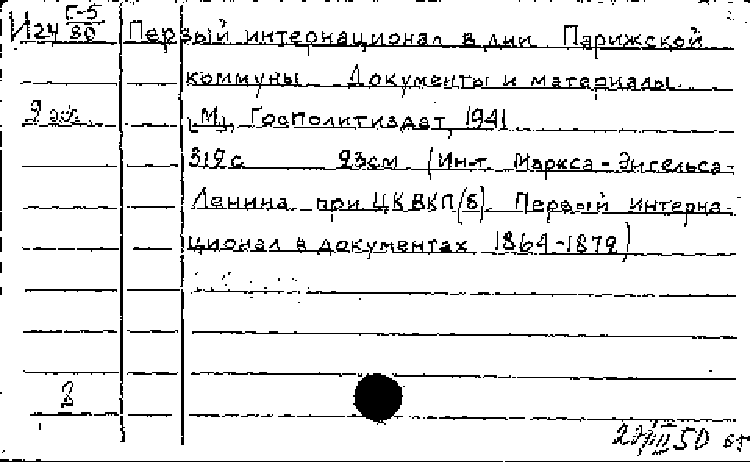 И24 Г-5/80
Первый интернационал в дни Парижской
коммуны. Документы и материалы.
2 экз.
[М], Госполитиздат, 1941
319 с 23 см. (Ин-т Маркса-Энгельса-
Ленина при ЦК ВКП(б). Первый интерна-
ционал в документах 1864-1872)
50